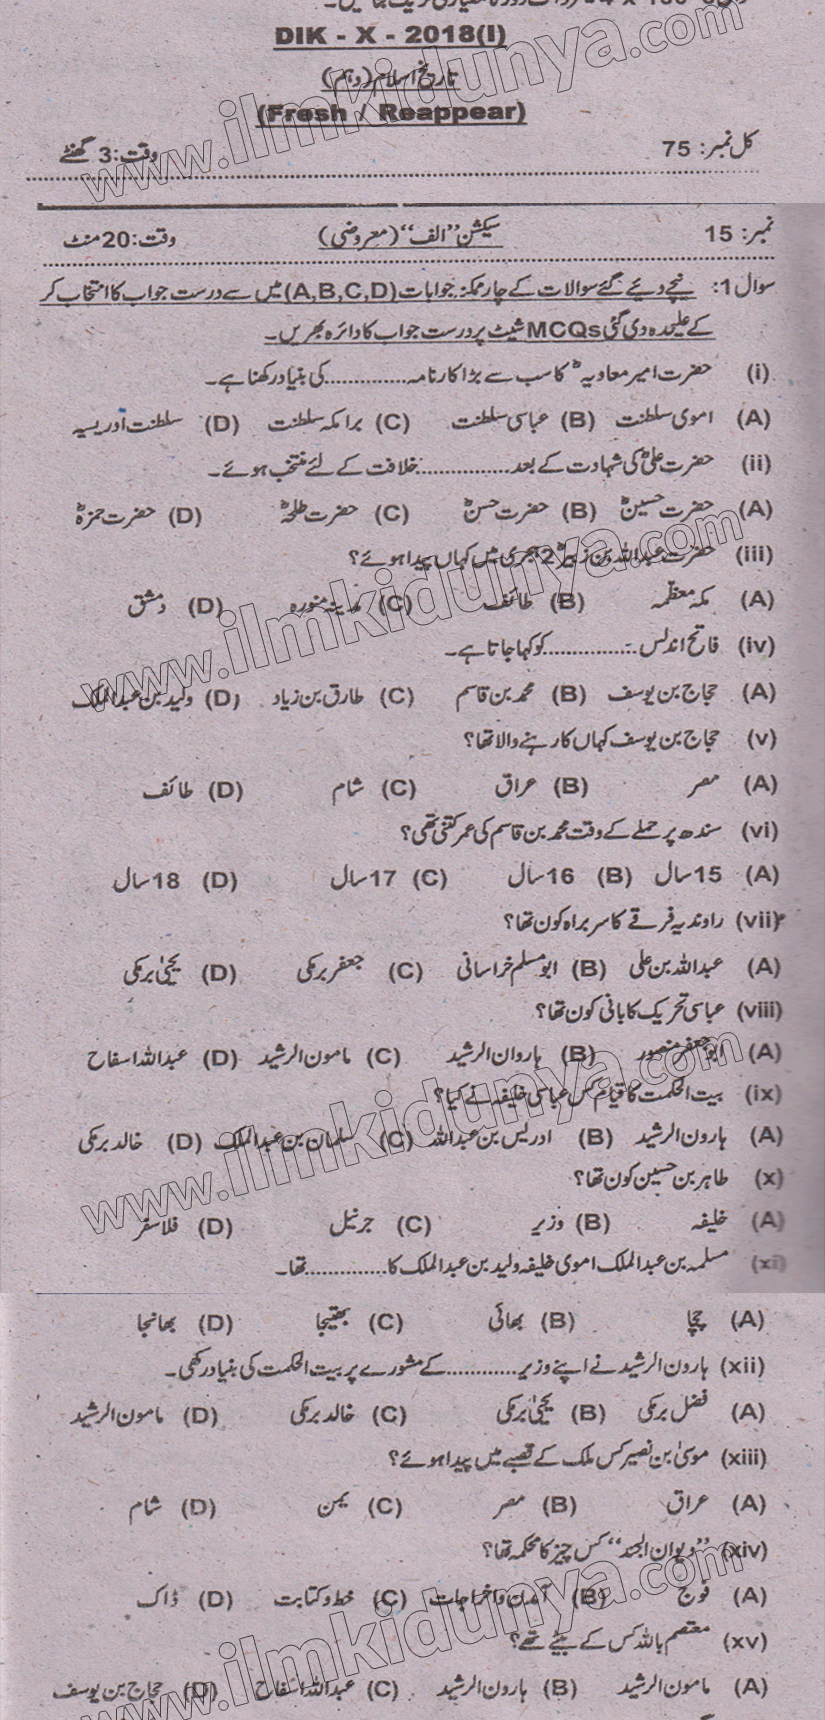 DIK - X - 2018(I)
تاریخ اسلام (دہم)
(Fresh / Reappear)
کل نمبر: 75 وقت: 3 گھنٹے
نمبر: 15 سیکشن ”الف“ (معروضی) وقت: 20 منٹ
سوال 1: نیچے دیئے گئے سوالات کے چار ممکنہ جوابات (A,B,C,D) میں سے درست جواب کا انتخاب کر
کے علیحدہ دی گئی MCQs شیٹ پر درست جواب کا دائرہ بھریں۔
(i) حضرت امیر معاویہؓ کا سب سے بڑا کارنامہ .............. کی بنیاد رکھنا ہے۔
(A) اموی سلطنت (B) عباسی سلطنت (C) برامکہ سلطنت (D) سلطنت ادریسیہ
(ii) حضرت علیؓ کی شہادت کے بعد .............. خلافت کے لئے منتخب ہوئے۔
(A) حضرت حسینؓ (B) حضرت حسنؓ (C) حضرت طلحہؓ (D) حضرت حمزہؓ
(iii) حضرت عبداللہ بن زبیرؓ 2 ہجری میں کہاں پیدا ہوئے؟
(A) مکہ معظمہ (B) طائف (C) مدینہ منورہ (D) دمشق
(iv) فاتح اندلس .............. کو کہا جاتا ہے۔
(A) حجاج بن یوسف (B) محمد بن قاسم (C) طارق بن زیاد (D) ولید بن عبدالملک
(v) حجاج بن یوسف کہاں کا رہنے والا تھا؟
(A) مصر (B) عراق (C) شام (D) طائف
(vi) سندھ پر حملے کے وقت محمد بن قاسم کی عمر کتنی تھی؟
(A) 15 سال (B) 16 سال (C) 17 سال (D) 18 سال
(vii) راوندیہ فرقے کا سربراہ کون تھا؟
(A) عبداللہ بن علی (B) ابو مسلم خراسانی (C) جعفر برمکی (D) یحییٰ برمکی
(viii) عباسی تحریک کا بانی کون تھا؟
(A) ابو جعفر منصور (B) ہاروان الرشید (C) مامون الرشید (D) عبداللہ اسفاح
(ix) بیت الحکمت کا قیام کس عباسی خلیفہ نے کیا؟
(A) ہارون الرشید (B) ادریس بن عبداللہ (C) سلمان بن عبدالملک (D) خالد برمکی
(x) طاہر بن حسین کون تھا؟
(A) خلیفہ (B) وزیر (C) جرنیل (D) فلاسفر
(xi) مسلمہ بن عبدالملک اموی خلیفہ ولید بن عبدالملک کا .............. تھا۔
(A) چچا (B) بھائی (C) بھتیجا (D) بھانجا
(xii) ہارون الرشید نے اپنے وزیر ............ کے مشورے پر بیت الحکمت کی بنیاد رکھی۔
(A) فضل برمکی (B) یحییٰ برمکی (C) خالد برمکی (D) مامون الرشید
(xiii) موسیٰ بن نصیر کس ملک کے قصبے میں پیدا ہوئے؟
(A) عراق (B) مصر (C) یمن (D) شام
(xiv) ”دیوان الجند“ کس چیز کا محکمہ تھا؟
(A) فوج (B) آمدن و اخراجات (C) خط و کتابت (D) ڈاک
(xv) معتصم باللہ کس کے بیٹے تھے؟
(A) مامون الرشید (B) ہارون الرشید (C) عبداللہ اسفاح (D) حجاج بن یوسف
www.ilmkidunya.com
www.ilmkidunya.com
www.ilmkidunya.com
www.ilmkidunya.com